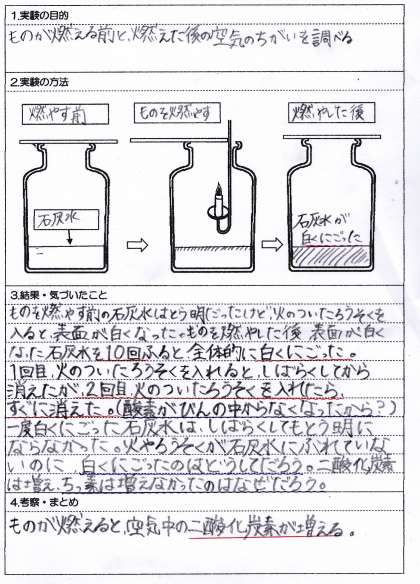 1.実験の目的
ものが燃える前と、燃えた後の空気のちがいを調べる
2.実験の方法
燃やす前
ものを燃やす
燃やした後
石灰水
石灰水が
白くにごった
3.結果・気づいたこと
ものを燃やす前の石灰水はとう明だったけど、火のついたろうそくを
入ると、表面が白くなった。ものを燃やした後、表面が白く
なった石灰水を10回ふると、全体的に白くにごった。
1回目、火のついたろうそくを入れると、しばらくしてから
消えたが、2回目、火のついたろうそくを入れたら、
すぐに消えた。(酸素がびんの中からなくなったから?)
一度白くにごった石灰水は、しばらくしてもとう明に
ならなかった。火やろうそくが石灰水にふれていな
いのに 白くにごったのはどうしてだろう。二酸化炭素
は増え、ちっ素は増えなかったのはなぜだろう。
4.考察・まとめ
ものが燃えると、空気中の二酸化炭素が増える。